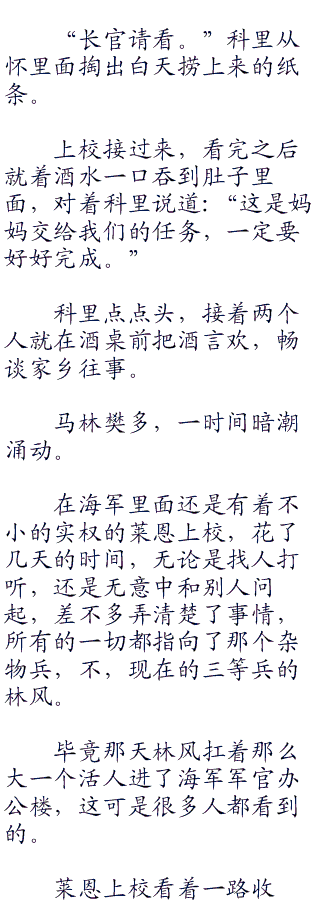 “长官请看。”科里从
怀里面掏出白天捞上来的纸
条。
上校接过来，看完之后
就着酒水一口吞到肚子里
面，对着科里说道：“这是妈
妈交给我们的任务，一定要
好好完成。”
科里点点头，接着两个
人就在酒桌前把酒言欢，畅
谈家乡往事。
马林樊多，一时间暗潮
涌动。
在海军里面还是有着不
小的实权的莱恩上校，花了
几天的时间，无论是找人打
听，还是无意中和别人问
起，差不多弄清楚了事情，
所有的一切都指向了那个杂
物兵，不，现在的三等兵的
林风。
毕竟那天林风扛着那么
大一个活人进了海军军官办
公楼，这可是很多人都看到
的。
莱恩上校看着一路收